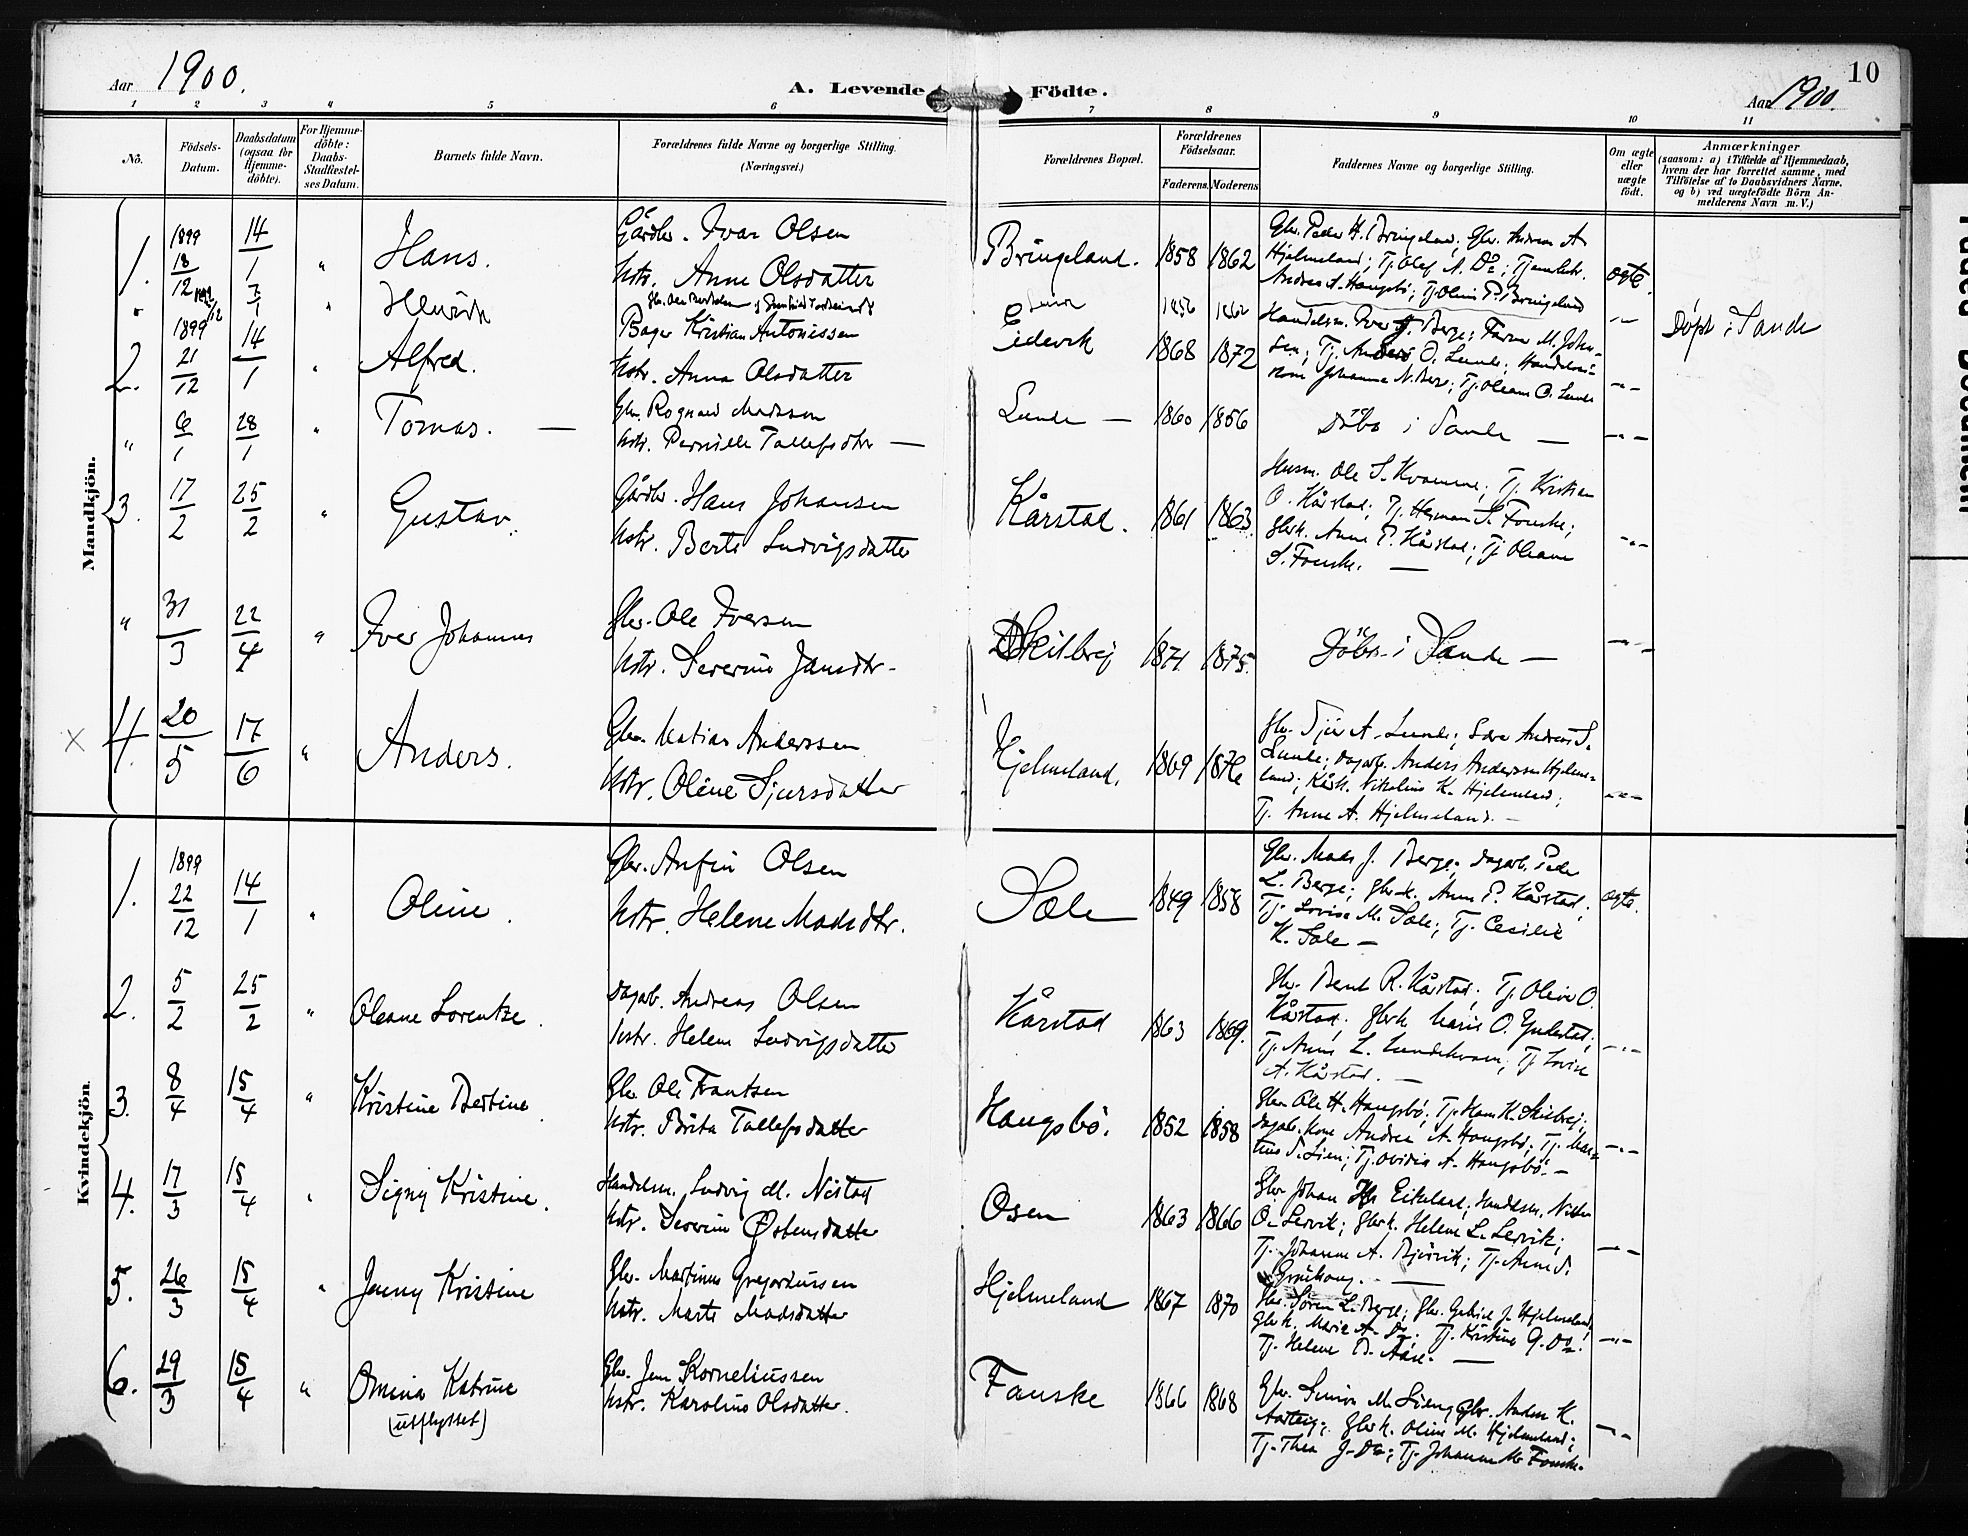 10
Aar 1900.
A. Levende Födte.
Aar 1900.
1 2 3 4 5 6 7 8 9 10 11
No.
Födsels-Datum.
Daabsdatum (ogsaa för Hjemme-döbte).
For Hjemme-döbte: Daabs-Stadfæstel-ses Datum.
Barnets fulde Navn.
Forældrenes fulde Navne og borgerlige Stilling. (Næringsvei.)
Forældrenes Bopæl.
Forældrenes Födselsaar.
Faderens. Moderens
Faddernes Navne og borgerlige Stilling.
Om ægte eller uægte födt.
Anmærkninger
(saasom: a) i Tilfælde af Hjemmedaab,
hvem der har forrettet samme, med
Tilföielse af to Daabsvidners Navne.
og b) ved uægtefödte Börn An-
melderens Navn m. V.)
Mandkjön.
1. 1899 18/12 14/1 " Hans. Gårdbr. Ivar Olsen
Hstr. Anne Olsdatter
Bringeland. 1858 1862
Gbr. Peder H. Bringeland; Gbr. Andreas A.
Hjelmeland; Tj. Olaf A. Do;
Andrea A. Haugsbö; Tj. Olina P. Bringeland
ægte.
" 7/1 " Henrik
-"- Döpt i Sande
2. 1899 21/12 14/1 " Alfred. Bager Kristian Antonissen
Hstr. Anna Olsdatter
Eidevik 1868 1872
Handelsm. Iver J. Berge; M. John-
sen; Tj. Anders O. Lunde; Handelsm.-
kone Johanna N. Berge; Tj. Oleana O. Lunde
-"-
" 6/1 28/1 " Tomas. — Gbr. Rognald Madssen
Hstr. Pernille Tollefsdtr —
Lunde — 1860 1856 Döbt i Sande — -"-
3. 17/2 25/2 " Gustav. Gårdbr. Hans Johansen
Hstr. Berte Ludvigsdatter
Kårstad. 1861 1863.
Husm. Ole S. Kvamme; Tj. Kristian
O. Kårstad; Tj. Herman S. Fauske;
Gbrk. Anne P. Kårstad; Tj. Oleane
S. Fauske. —
-"-
" 31/3 22/4 " Iver Johannes Gbr. Ole Iversen
Hstr. Severine Jansdtr -
Skilbrej 1871 1875. Döbt i Sande — -"-
4. 20/5 17/6 " Anders. Gbr. Matias Anderssen
Hstr. Oline Sjursdatter
Hjelmeland. 1869 1876
Gbr. Sjur A. Lunde; Andreas S.
Lunde; Dagarb. Anders Anderssen Hjelme-
land; Kårk. Nikoline K. Hjelmeland;
Tj. Anne A. Hjelmeland. —
-"-
Kvindekjön.
1. 1899 22/12 14/1 " Oline. Gbr. Anfin Olsen
Hstr. Helene Madsdtr.
Sæle 1849 1858
Gbr. Mads J. Berge; Dagarb. Peder
L. Berge; Gbrk. Anne P. Kårstad;
Tj. Lovise M. Sæle; Tj. Cecilie
K. Sæle —
ægte.
2. 5/2 25/2 " Oleane Lorentze. Dagarb. Andreas Olsen
Hstr. Helene Ludvigsdatter
Kårstad 1863 1869.
Gbr. Bent R. Kårstad; Tj. Oliver O.
Kårstad; Gbrk. Marie O. Gjelestad;
Tj. Anne L. Lundekvam; Tj. Lovise
A. Kårstad. —
-"-
3. 8/4 15/4 " Kristine Bertine. Gbr. Ole Frantsen
Hstr. Brita Tollefsdatter
Haugsbö. 1852 1858
Gbr. Ole H. Haugsbö; Tj. Hans K. Skilbrej;
Dagarb. kone Andrea A. Haugsbö; Tj. Mar-
tine S. Lien; Tj. Ovidia A. Haugsbö. —
-"-
4. 17/3 15/4 " Signy Kristine. Handelsm. Ludvig M. Nistad
Hstr. Severine Östensdatter
Osen 1863 1866
Gbr. Johan Eikeland; Handelsm. Nikolai
O. Lervik; Gbrk. Helene L. Lervik;
Tj. Johanne A. Bjørvik; Tj. Anne S.
Grønhaug. —
-"-
5. 26/3 15/4 " Jenny Kristine Gbr. Martinus Gregoriussen
Hstr. Marte Madsdatter
Hjelmeland 1867 1870
Gbr. Søren L. Berge; Gbr. Gabriel J. Hjelmeland;
Gbrk. Marie A. Do; Tj. Kristine G. Do;
Tj. Helene D. Aase. —
-"-
6. 29/3 15/4 " Omina Katrine
(utflyttet)
Gbr. Jens Korneliussen
Hstr. Karoline Olsdatter.
Fauske 1866 1868
Gbr. Simon M. Lien; Gbr. Anders K.
Gbrk. Oline M. Hjelmeland;
Tj. Thea J. Do; Tj. Johanne M. Fauske.
-"-